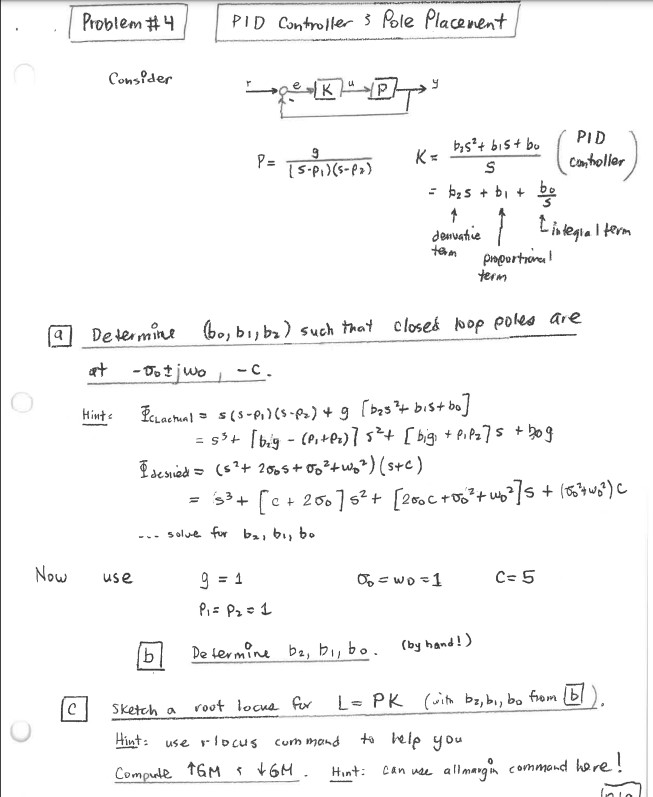 Problem #4
PID Controller & Pole Placement
Consider
r e K u P y
-
P = g / ((s-p₁)(s-p₂))
K = (b₂s² + b₁s + b₀) / s (PID Controller)
= b₂s + b₁ + b₀/s
derivative term
proportional term
integral term
a Determine (b₀, b₁, b₂) such that closed loop poles are
at -σ₀ ± jω₀, -c.
Hint: Φ_CLactual = s(s-p₁)(s-p₂) + g [b₂s² + b₁s + b₀]
= s³ + [b₂g - (p₁+p₂)] s² + [b₁g + p₁p₂] s + b₀g
Φ_desired = (s² + 2σ₀s + σ₀² + ω₀²)(s+c)
= s³ + [c + 2σ₀] s² + [2σ₀c + σ₀² + ω₀²] s + (σ₀² + ω₀²) c
--- solve for b₂, b₁, b₀
Now use g = 1 σ₀ = ω₀ = 1 C = 5
p₁ = p₂ = 1
b Determine b₂, b₁, b₀. (by hand!)
c Sketch a root locus for L = PK (with b₂, b₁, b₀ from b).
Hint: use rlocus command to help you
Compute ↑GM & ↓GM. Hint: can use allmargin command here!